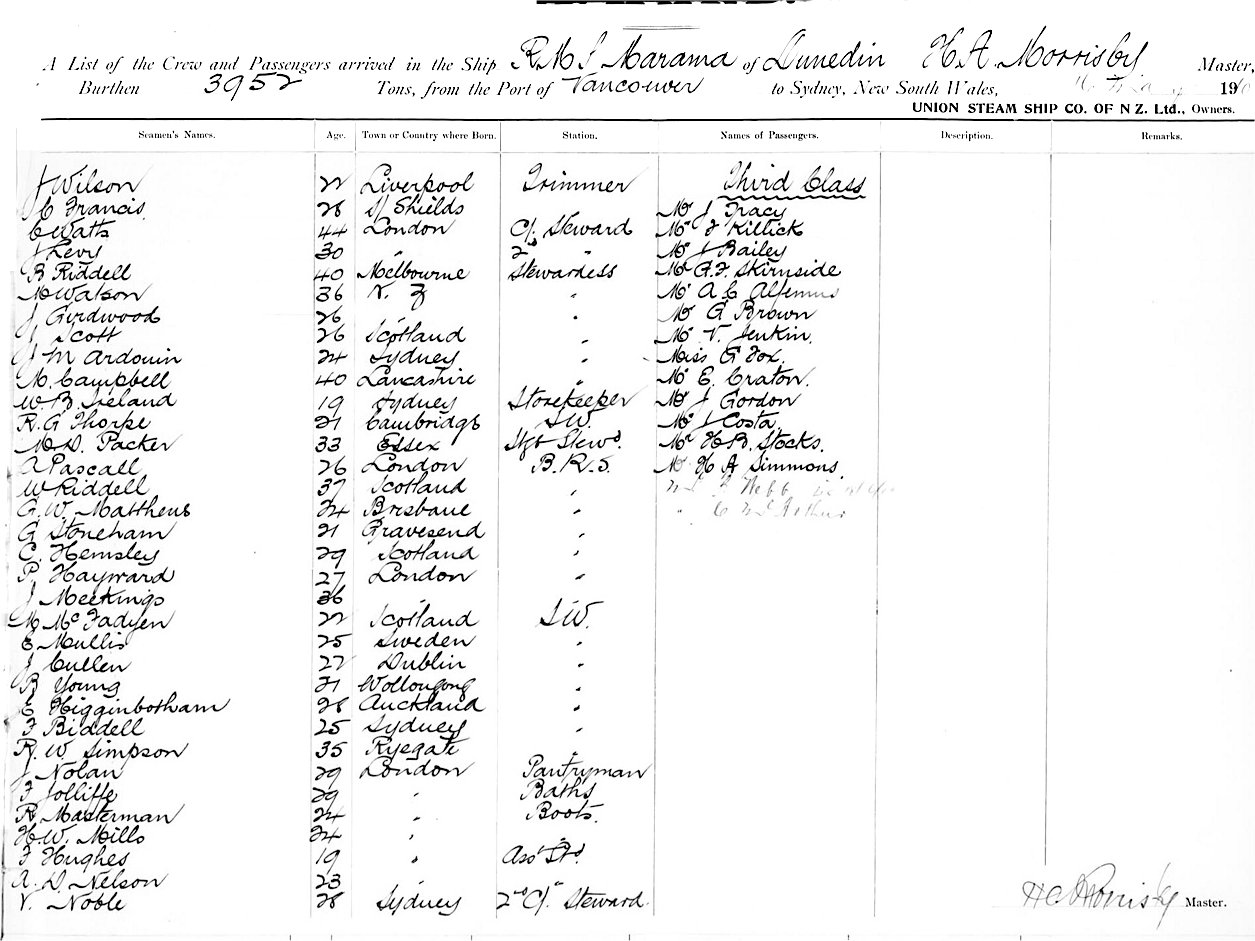 A List of the Crew and Passengers arrived in the Ship R.M.S Marama of Dunedin H. A. Morrisby Master,
Burthen 3952 Tons, from the Port of Vancouver to Sydney, New South Wales, 19
UNION STEAM SHIP CO. OF N Z. Ltd., Owners.
Seamen's Names. Age. Town or Country where Born. Station. Names of Passengers. Description. Remarks.
J Wilson 22 Liverpool Trimmer Third Class
C Francis 28 S/ Shields Mr J Tracy
C Watts 44 London C/. Steward Mr F Killick
J Levy 30 " 2 " Mr J Bailey
B Riddell 40 Melbourne Stewardess Mr G.F. Skirnside
M Watson 36 N. Z " Mr A C Alfemus
J Girdwood 26 " Mr G Brown
J Scott 26 Scotland " Mr V. Jenkin.
J M Ardouin 24 Sydney " Miss G Fox.
M. Campbell 40 Lancashire " Mr E. Craton.
W. B Ireland 19 Sydney Storekeeper Mr J Gordon
R. G Thorpe 21 Cambridge S.W. Mr J Costa
M. D. Packer 33 Essex Stg Stewd. Mr H. B. Stocks.
A Pascall 26 London B. R. S. Mr H A Simmons
W Riddell 37 Scotland " Webb
G. W. Matthews 24 Brisbane " " C
G Stoneham 21 Gravesend "
C. Hemsley 29 Scotland "
P. Hayward 27 London "
J Meekings 36 "
M McFadyen 22 Scotland S.W.
E Mullis 25 Sweden "
J Cullen 22 Dublin "
B Young 21 Wollongong "
E Higginbotham 28 Auckland "
F Biddell 25 Sydney "
R. W Simpson 35 Ryegate "
J Nolan 29 London Pantryman
F Jolliffe 29 " Baths
R Masterman 24 " Boots.
H. W. Mills 24 " "
F Hughes 19 " Asst Std.
A. D. Nelson 23 " "
V. Noble 28 Sydney 2nd C/. Steward
H A Morrisby Master.